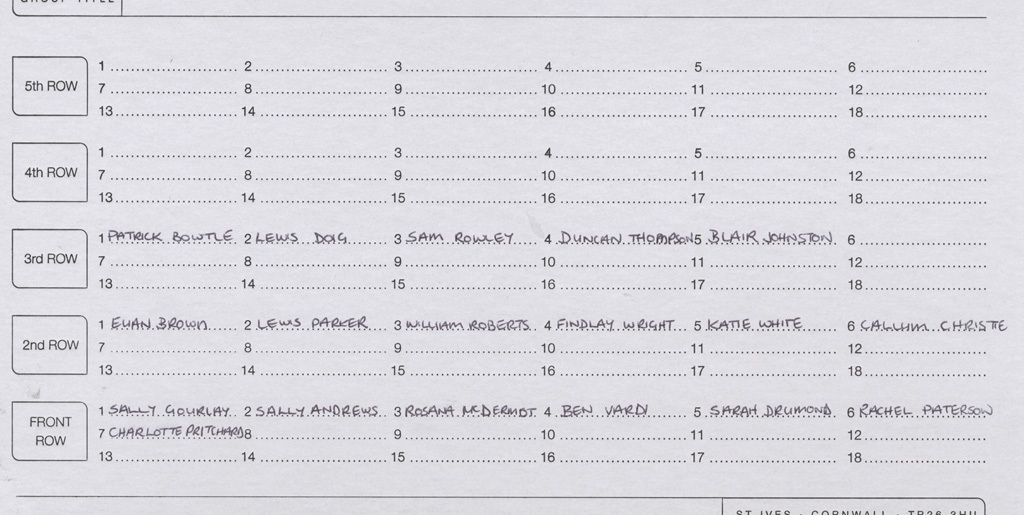 GROUP TITLE
5th ROW
1 2 3 4 5 6
7 8 9 10 11 12
13 14 15 16 17 18
4th ROW
1 2 3 4 5 6
7 8 9 10 11 12
13 14 15 16 17 18
3rd ROW
1 PATRICK BOWTLE 2 LEWIS DOIG 3 SAM ROWLEY 4 DUNCAN THOMPSON 5 BLAIR JOHNSTON 6
7 8 9 10 11 12
13 14 15 16 17 18
2nd ROW
1 EUAN BROWN 2 LEWIS PARKER 3 WILLIAM ROBERTS 4 FINDLAY WRIGHT 5 KATIE WHITE 6 CALLUM CHRISTIE
7 8 9 10 11 12
13 14 15 16 17 18
FRONT ROW
1 SALLY GOURLAY 2 SALLY ANDREWS 3 ROSANA McDERMOT 4 BEN VARDI 5 SARAH DRUMOND 6 RACHEL PATERSON
7 CHARLOTTE PRITCHARD 8 9 10 11 12
13 14 15 16 17 18
ST IVES - CORNWALL - TR26 3HU